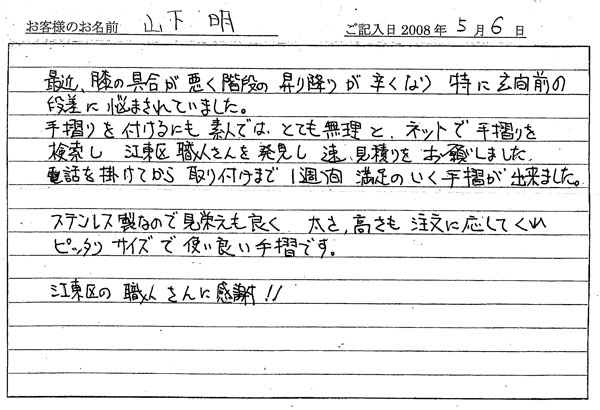 お客様のお名前 山下 明 ご記入日 2008 年 5 月 6 日
最近、膝の具合が悪く階段の昇り降りが辛くなり 特に玄関前の
段差に悩まされていました。
手摺りを付けるにも 素人では、とても無理と、ネットで手摺りを
検索し 江東区 職人さんを発見し 速、見積りをお願いしました。
電話を掛けてから 取り付けまで 1週間 満足のいく手摺が出来ました。
ステンレス製なので見栄えも良く 太さ,高さも 注文に応してくれ
ピッタリ サイズで 使い良い手摺です。
江東区の 職人さんに感謝!!